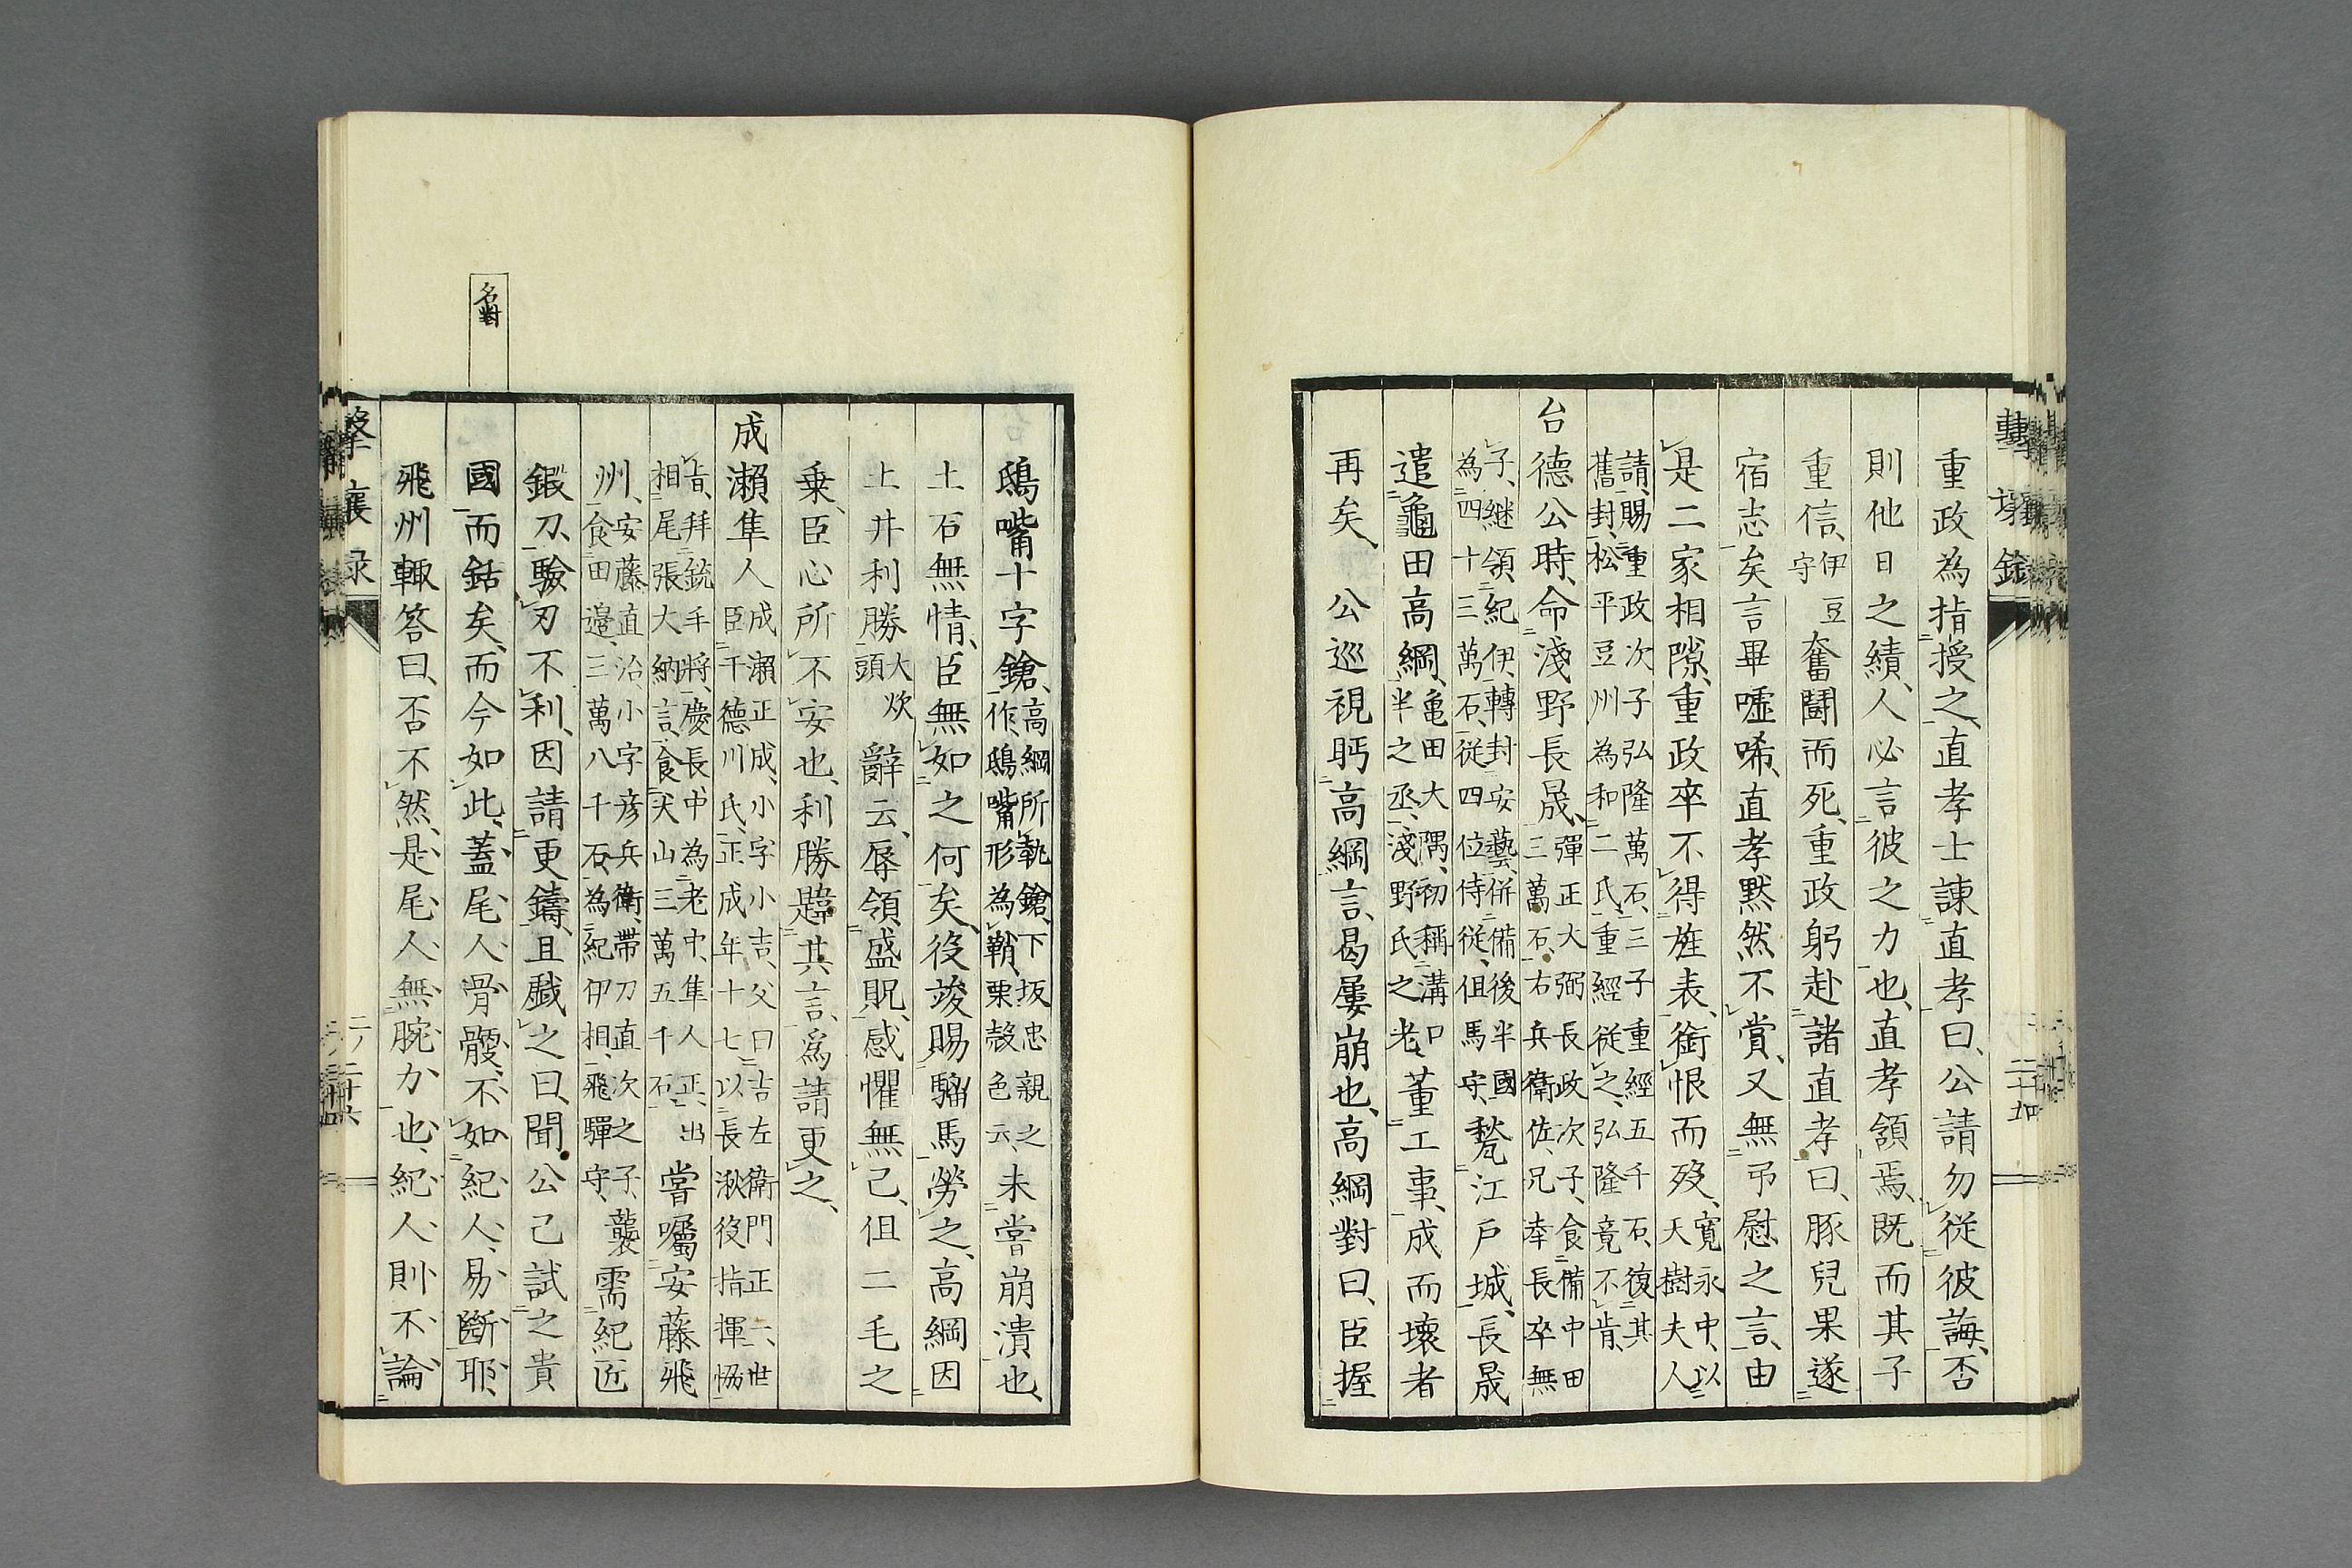 重政為指授之、直孝士諌直孝曰、公請勿從彼誨、否
則他日之績、人必言彼之力也、直孝領焉、既而其子
重信、伊豆守奮鬪而死、重政躬赴諸直孝曰、豚兒果遂
宿志矣言畢噓唏、直孝黙然不賞、又無弔慰之言、由
是二家相隙、重政卒不得旌表、銜恨而歿、寛永中、以天樹夫人
請、賜重政次子弘隆萬石、三子重經五千石、復其
舊封、松平豆州為和二氏、重經從之、弘隆竟不肯、
台德公時、命淺野長晟、彈正大弼長政次子、食備中田
三萬石、右兵衛佐、兄幸長卒無
子、継領紀伊、轉封安藝、併備後半國
為四十三萬石、從四位侍從、但馬守、甃江戸城、長晟
遣龜田高綱、亀田大隅、初稱溝口
半之丞、淺野氏之老、董工事、成而壊者
再矣、公巡視眄高綱言、曷屢崩也、高綱對曰、臣握
二十四
名對
鴟嘴十字鎗、高綱所執鎗、下坂忠親之
作、鴟嘴形為鞘、栗殼色云、未嘗崩潰也、
土石無情、臣無如之何矣、役竣賜騮馬勞之、高綱因
土井利勝大炊頭辭云、辱領盛貺、感懼無已、但二毛之
乗、臣心所不安也、利勝韙其言、為請更之、
成瀬隼人成瀬正成、小字小吉、父曰吉左衛門正一、世
臣于德川氏、正成年十七以長湫役指揮協
旨、拜銃手將、慶長中為老中、隼人正、出
相尾張大納言、食犬山三萬五千石、嘗囑安藤飛
州、安藤直治、小字彦兵衛、帯刀直次之子、襲
食田邉三萬八千石、為紀伊相、飛驒守、需紀匠
鍛刀、驗刃不利、因請更鑄、且戯之曰、聞公己試之貴
國而銛矣、而今如此、蓋尾人骨䯊、不如紀人易斷耶、
飛州輙答曰、否不然、是尾人無腕力也、紀人則不論
撃壤录
二ノ二十六